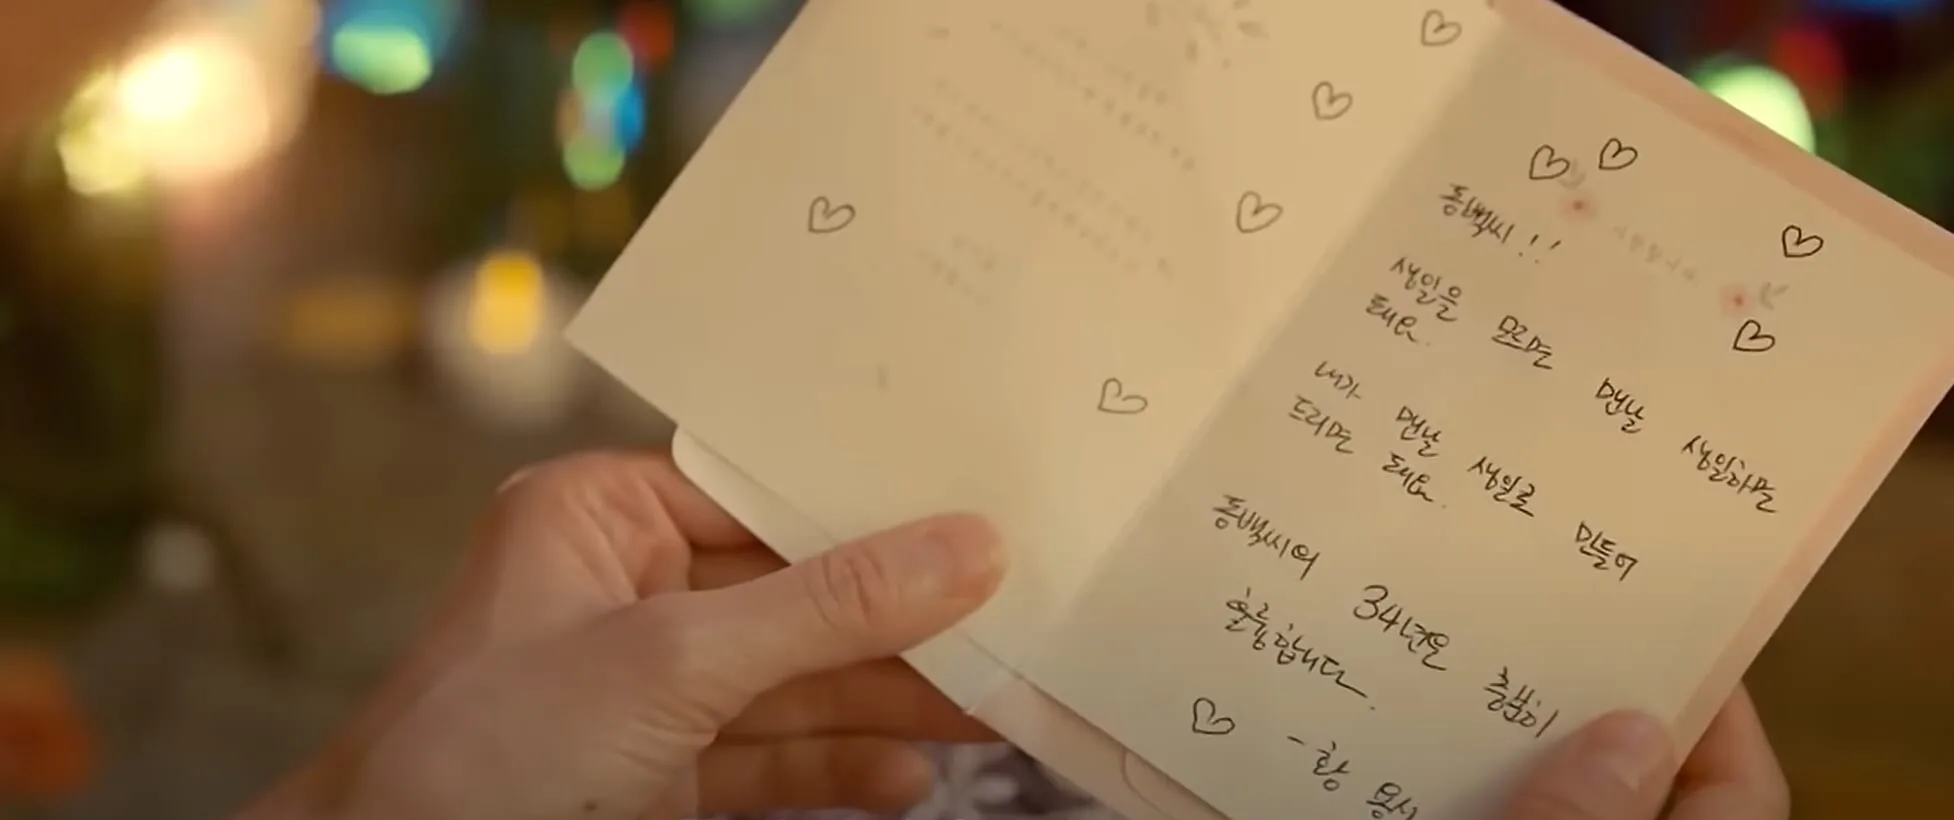 동백씨!!
생일을 모르면 맨날 생일하면
돼요.
내가 맨날 생일로 만들어
드리면 돼요.
동백씨의 34년은 충분히
훌륭합니다.
- 황 용식